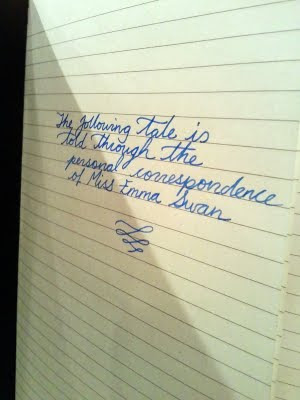 The following tale is
told through the
personal correspondence
of Miss Emma Swan